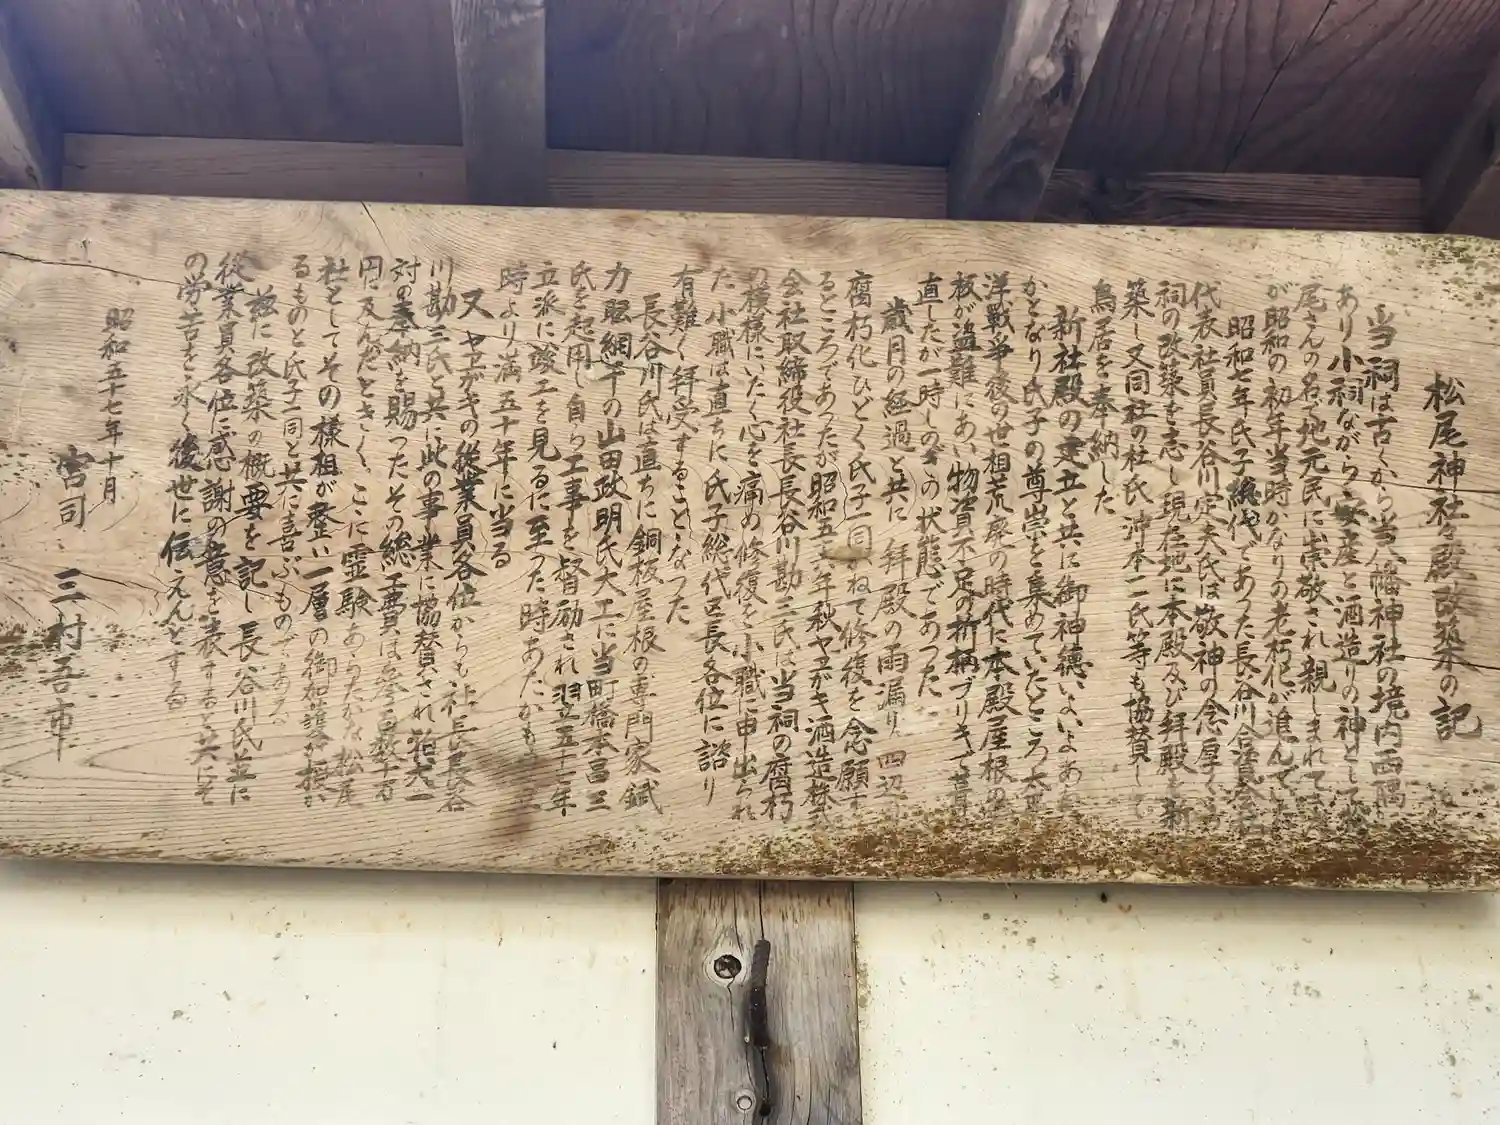 松尾神社々殿改築の記
当祠は古くから当八幡神社の境内西隅に
あり小祠ながら安産と酒造りの神として松
尾さんの名で地元民に崇敬され親しまれて
が昭和の初年当時かなりの老朽化が進んでいた
昭和七年氏子総代であった長谷川合資会社
代表社員長谷川定夫氏は敬神の念厚く当
祠の改築を志し現在地に本殿及び拝殿を新
築し又同社の杜氏沖本二氏等も協賛して
鳥居を奉納した
新社殿の建立と共に御神徳いよいよあき
かとなり氏子の尊崇を集めていたところ太平
洋戦争後の世相荒廃の時代に本殿屋根の
板が盗難にあい物資不足の折柄ブリキで葺
直したが一時しのぎの状態であった
歳月の経過と共に拝殿の雨漏り四辺
腐朽化ひどく氏子一同かねて修復を念願す
るところであったが昭和五十六年秋ヤヱガキ酒造株式
会社取締役社長長谷川勘三氏は当祠の腐朽
の模様にいたく心を痛め修復を小職に申出られ
た小職は直ちに氏子総代区長各位に諮り
有難く拝受することとなった
長谷川氏は直ちに銅板屋根の専門家錻
力屋網干の山田政明氏大工に当町橋本昌三
氏を起用し自ら工事を督励され翌五十七年
立派に竣工を見るに至った時あたかも
時より満五十年に当る
又ヤヱガキの従業員各位からも社長長谷
川勘三氏と共に此の事業に協賛され狛犬一
対の奉納を賜ったその総工費は参百数十万
円に及んだときく、ここに霊験あらたかな松尾
社としてその様相が整い一層の御加護を授か
るものと氏子一同と共に喜ぶものである
茲に改築の概要を記し長谷川氏並に
従業員各位に感謝の意を表すると共にそ
の労苦を永く後世に伝えんとする
昭和五十七年十月
宮司 三村吾市